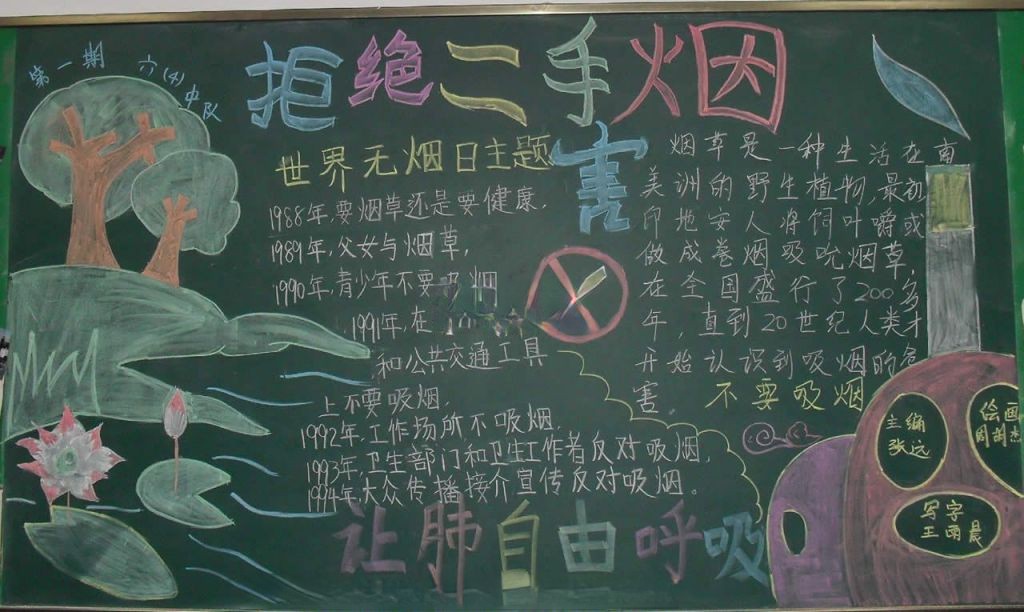 第一期
六(4)中队
拒绝二手烟
害
世界无烟日主题
1988年,要烟草还是要健康.
1989年,父女与烟草,
1990年,青少年不要 烟
1991年,在
和公共交通工具
上不要吸烟.
1992年,工作场所不吸烟.
1993年,卫生部门和卫生工作者反对吸烟,
1994年,大众传播接介宣传反对吸烟。
烟草是一种生活在南
美洲的野生植物,最初
印地安人将饲叶嚼或
做成卷烟吸吮烟草,
在全国盛行了200多
年,直到20世纪人类才
开始认识到吸烟的危
害。
不要吸烟
让肺自由呼吸
主编
张远
绘画
写字
王雨晨